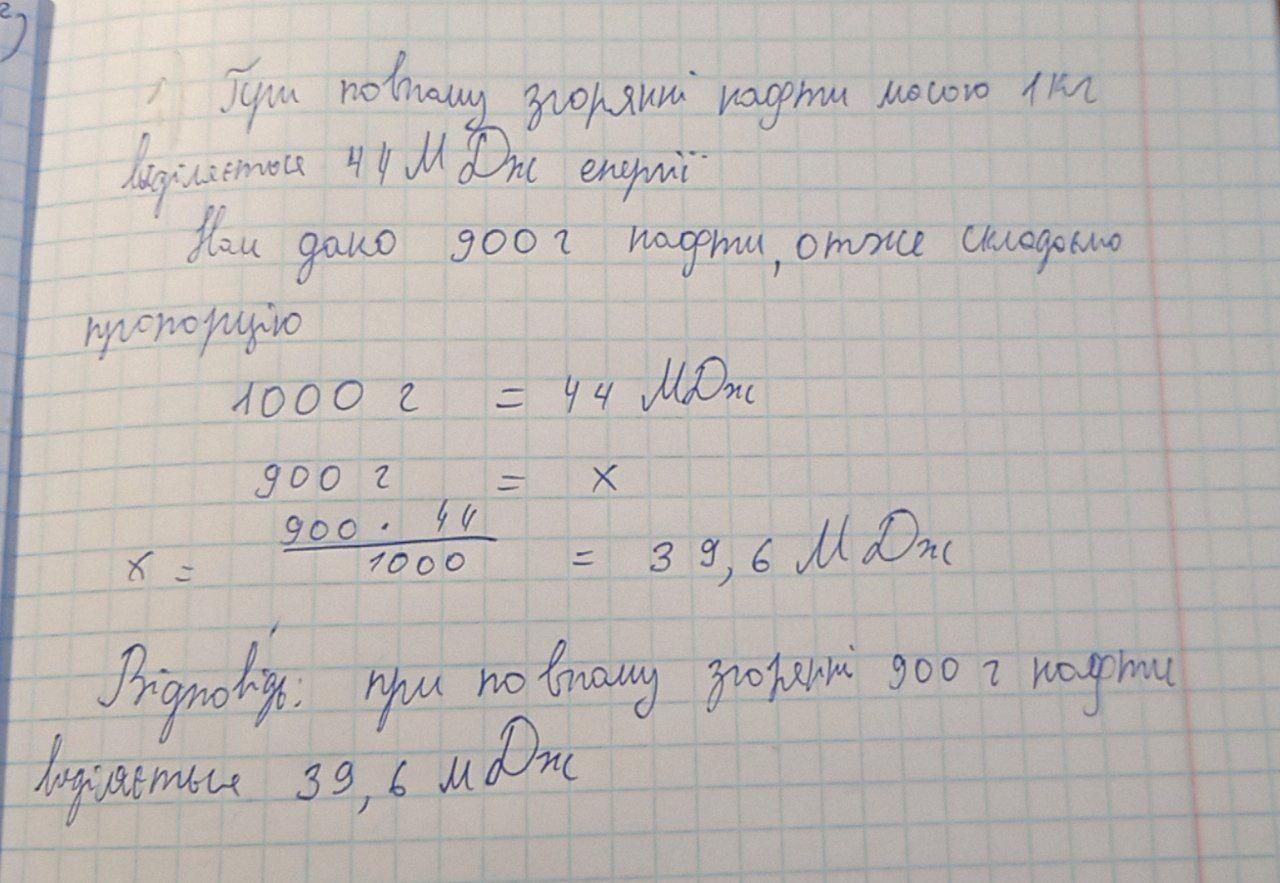 1) При повному згорянні нафти масою 1 кг
виділяється 44 МДж енергії
Нам дано 900 г нафти, отже складаємо
пропорцію
1000 г = 44 МДж
900 г = x
x = 900 · 44 / 1000 = 39,6 МДж
Відповідь: при повному згорянні 900 г нафти
виділяється 39,6 мДж